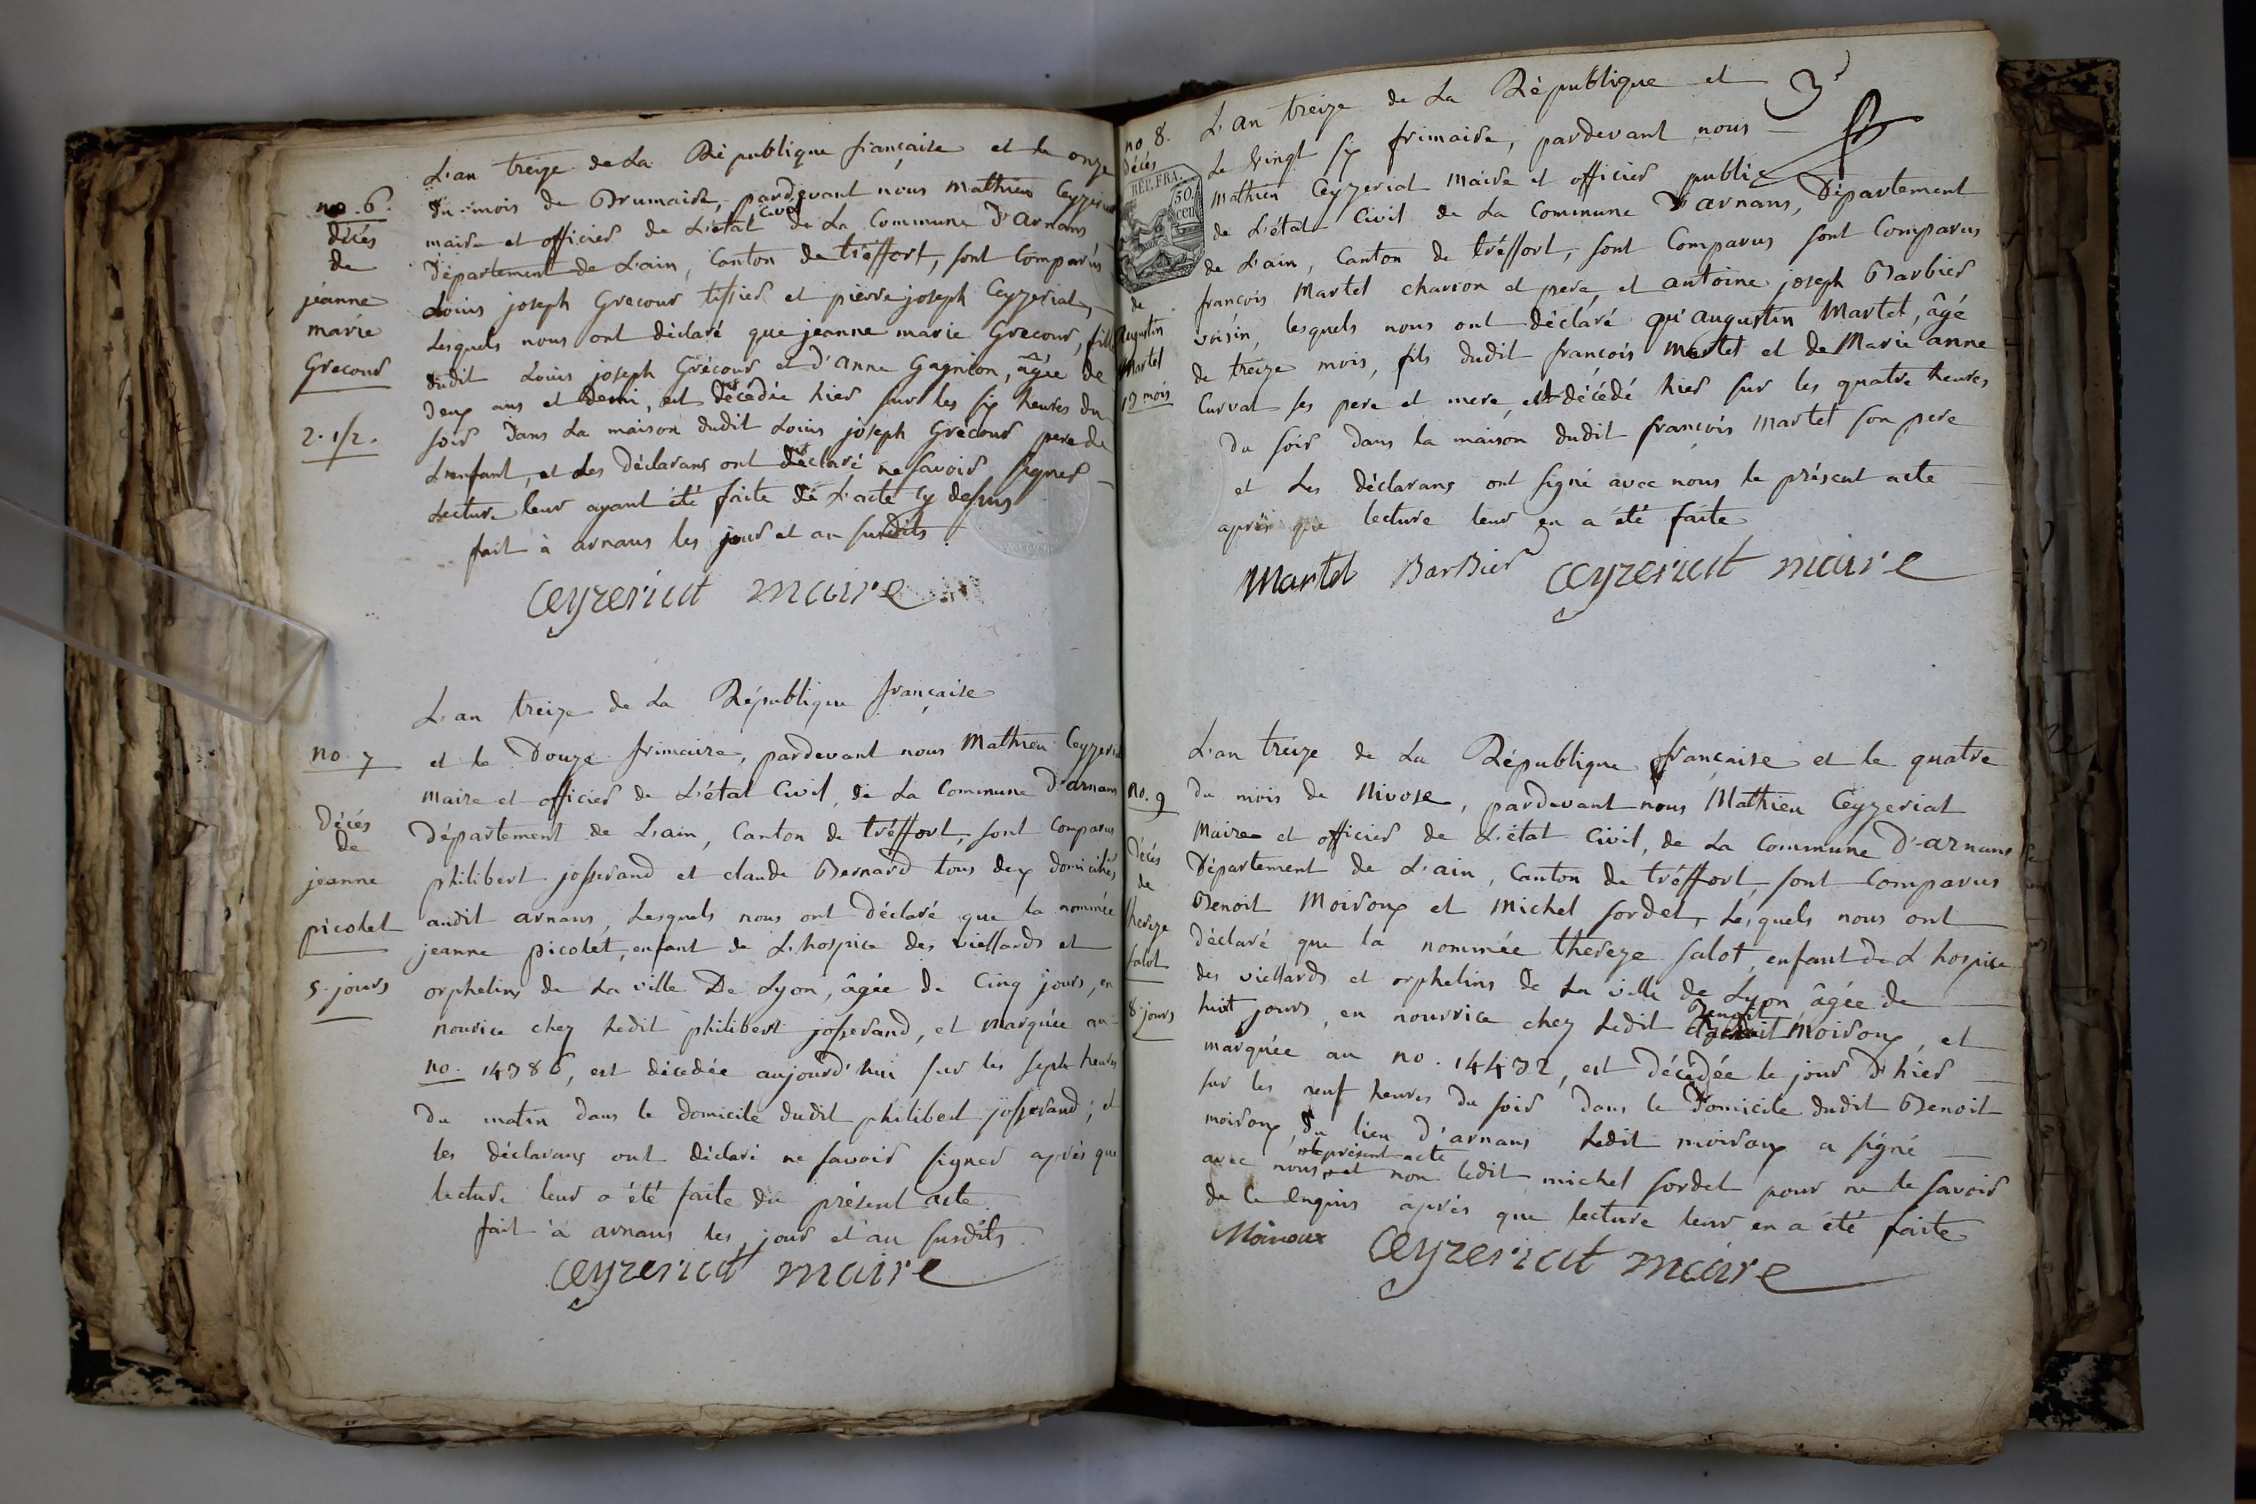 no. 6.
décés
de
jeanne
marie
Grecour
2. 1/2.
L'an treize de La République française et le onze
du mois de Brumaire, pardevant nous mathieu Ceyzeriat
maire et officier de L'état civil de La Commune D'arnans
Département de L'ain, Canton de tréffort, sont Comparus
Louis joseph Grecour tissier et pierre joseph Ceyzeriat,
Lesquels nous ont déclaré que jeanne marie Grecour, fille
dudit Louis joseph Grécour et d'anne Gagnion, âgée de
deux ans et demi, est décédée hier sur les six heures du
soir dans La maison dudit Louis joseph Grécour pere de
L'enfant, et Les déclarans ont déclaré ne savoir signer
Lecture leur ayant été faite de L'acte cy dessus
fait à arnans les jour et an susdits
Ceyzeriat maire
no. 7
Décés
de
jeanne
picolet
5. jours
L'an treize de La République française
et le Douze frimaire, pardevant nous Mathieu Ceyzeriat
maire et officier de L'état Civil, de La Commune D'arnans
département de L'ain, Canton de tréffort, sont Comparus
philibert josserand et claude Bernard tous deux domiciliés
audit arnans, Lesquels nous ont déclaré que la nommée
jeanne picolet, enfant de L'hospice des viellards et
orphelins de La ville De Lyon, âgée de Cinq jours, en
nourice chez Ledit philibert josserand, et marquée au
no. 14386, est décedée aujourd'hui sur les sept heures
du matin dans le domicile dudit philibert josserand; et
les déclarans ont déclaré ne savoir signer après que
lecture leur a été faite du présent acte.
fait à arnans les jour et an susdits.
Ceyzeriat maire
3
no 8.
décés
REP. FRA.
50.
cen
de
augustin
Martel
13 mois
L'an treize de La République et
Le vingt six frimaire, pardevant nous
Mathieu Ceyzeriat Maire et officier public
de L'état Civil de La Commune D'arnans, Département
de L'ain, Canton de tréffort, sont Comparus sont Comparus
françois Martel charron et pere, et antoine joseph Barbier
voisin, lesquels nous ont déclaré qu'augustin Martel, âgé
de treize mois, fils dudit françois Martel et de Marie anne
Curvat ses pere et mere, est décédé hier sur les quatre heures
du soir dans la maison dudit françois Martel son pere
et Les déclarans ont signé avec nous le présent acte
après que lecture leur en a été faite
Martel BarBier Ceyzeriat maire
no. 9
Décés
de
thereze
salot
8. jours
L'an treize de La République française et le quatre
du mois de Nivose, pardevant nous Mathieu Ceyzeriat
Maire et officier de L'état Civil, de La Commune D'arnans
Département de L'ain, Canton de tréffort, sont Comparus
Benoit Moiroux et Michel sordet, Lesquels nous ont
déclaré que la nommée thereze salot, enfant de L'hospice
des viellards et orphelins de La ville de Lyon âgée de
huit jours, en nourrice chez Ledit Benoit Moiroux, et
marquée au no. 14432, est décédée le jour D'hier
sur les neuf heures du soir dans le Domicile dudit Benoit
moiroux, du lieu d'arnans Ledit moiroux a signé
avec nous le présent acte et non ledit michel sordet pour ne le savoir
de ce enquis après que lecture leur en a été faite
Moiroux Ceyzeriat maire